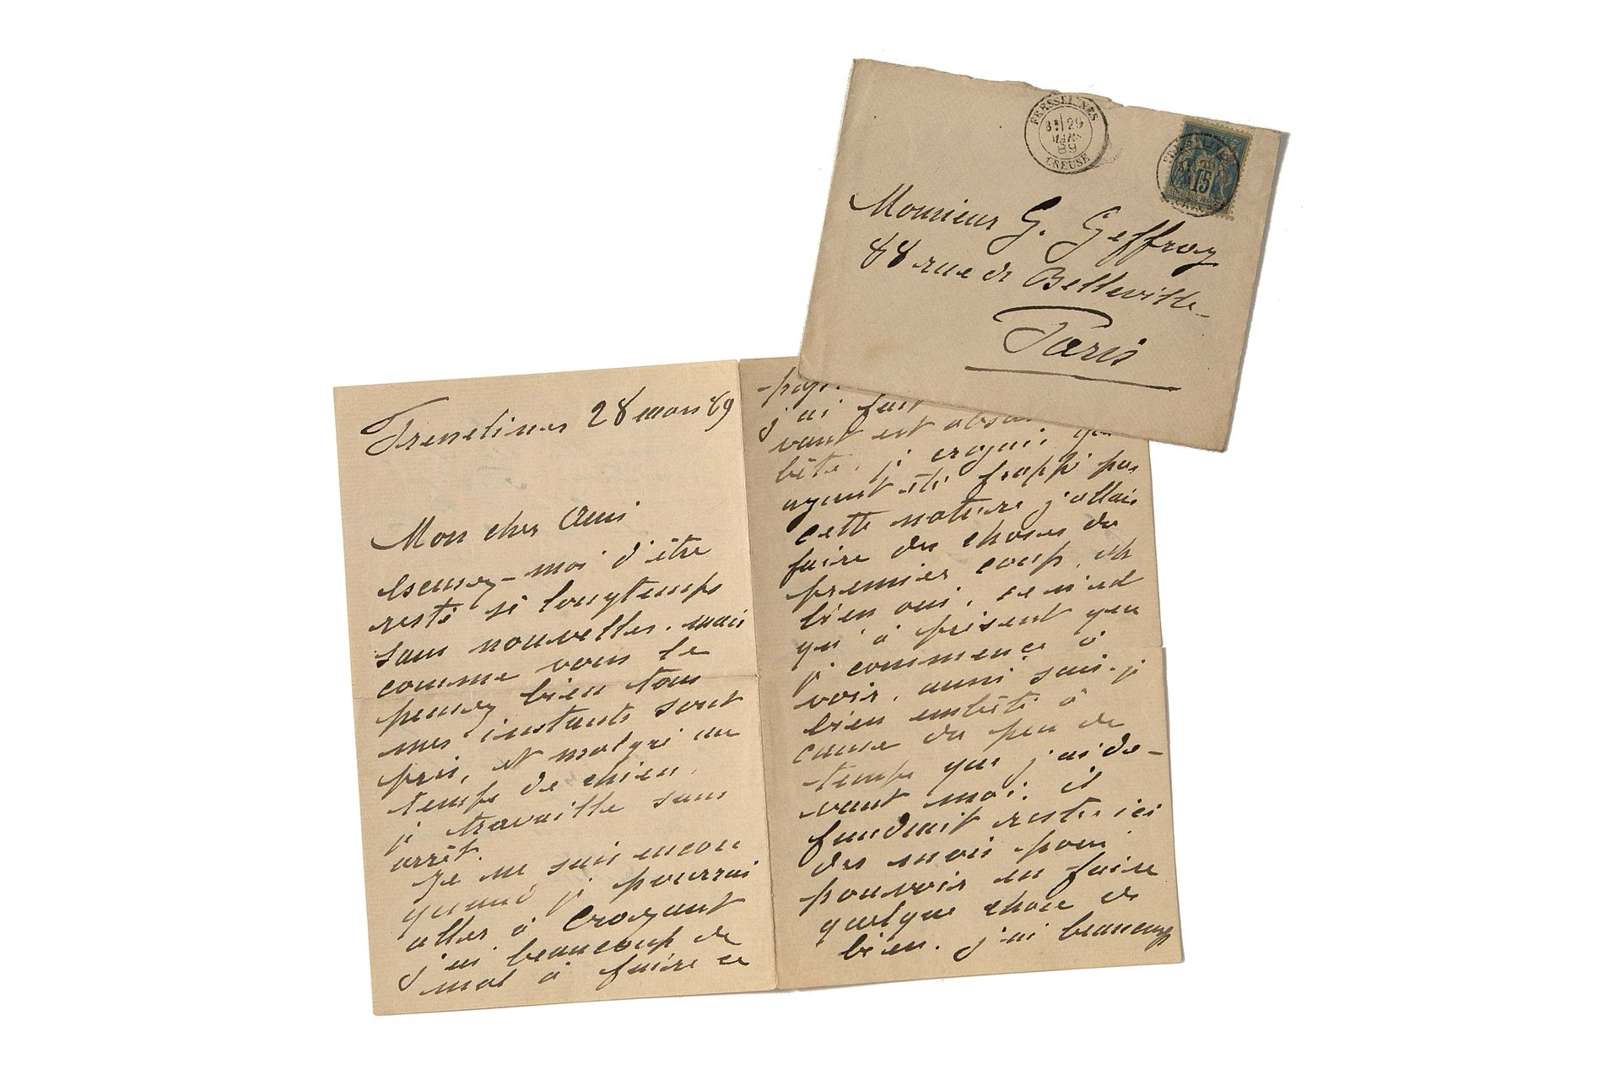 FRESSELINES
29
MARS
89
CREUSE
15
Monsieur G. Geffroy
88 rue de Belleville
Paris
Fresselines 28 mars 89
Mon cher Ami
Excusez-moi d'être
resté si longtemps
sans nouvelles. mais
comme vous le
pensez bien tous
mes instants sont
pris, et malgré un
temps de chien,
je travaille sans
arrêt.
Je ne sais encore
quand je pourrai
aller à Crozant
j'ai beaucoup de
mal à faire ce
j'ai fait
vant est
bête. je croyais
ayant été frappé par
cette nature j'allais
faire des choses du
premier coup, eh
bien oui, ce n'est
qu'à présent que
je commence à
voir. aussi suis-je
bien embêté à
cause du peu de
temps que j'ai de-
vant moi; il
faudrait rester ici
des mois pour
pouvoir en faire
quelque chose de
bien. j'ai beaucoup